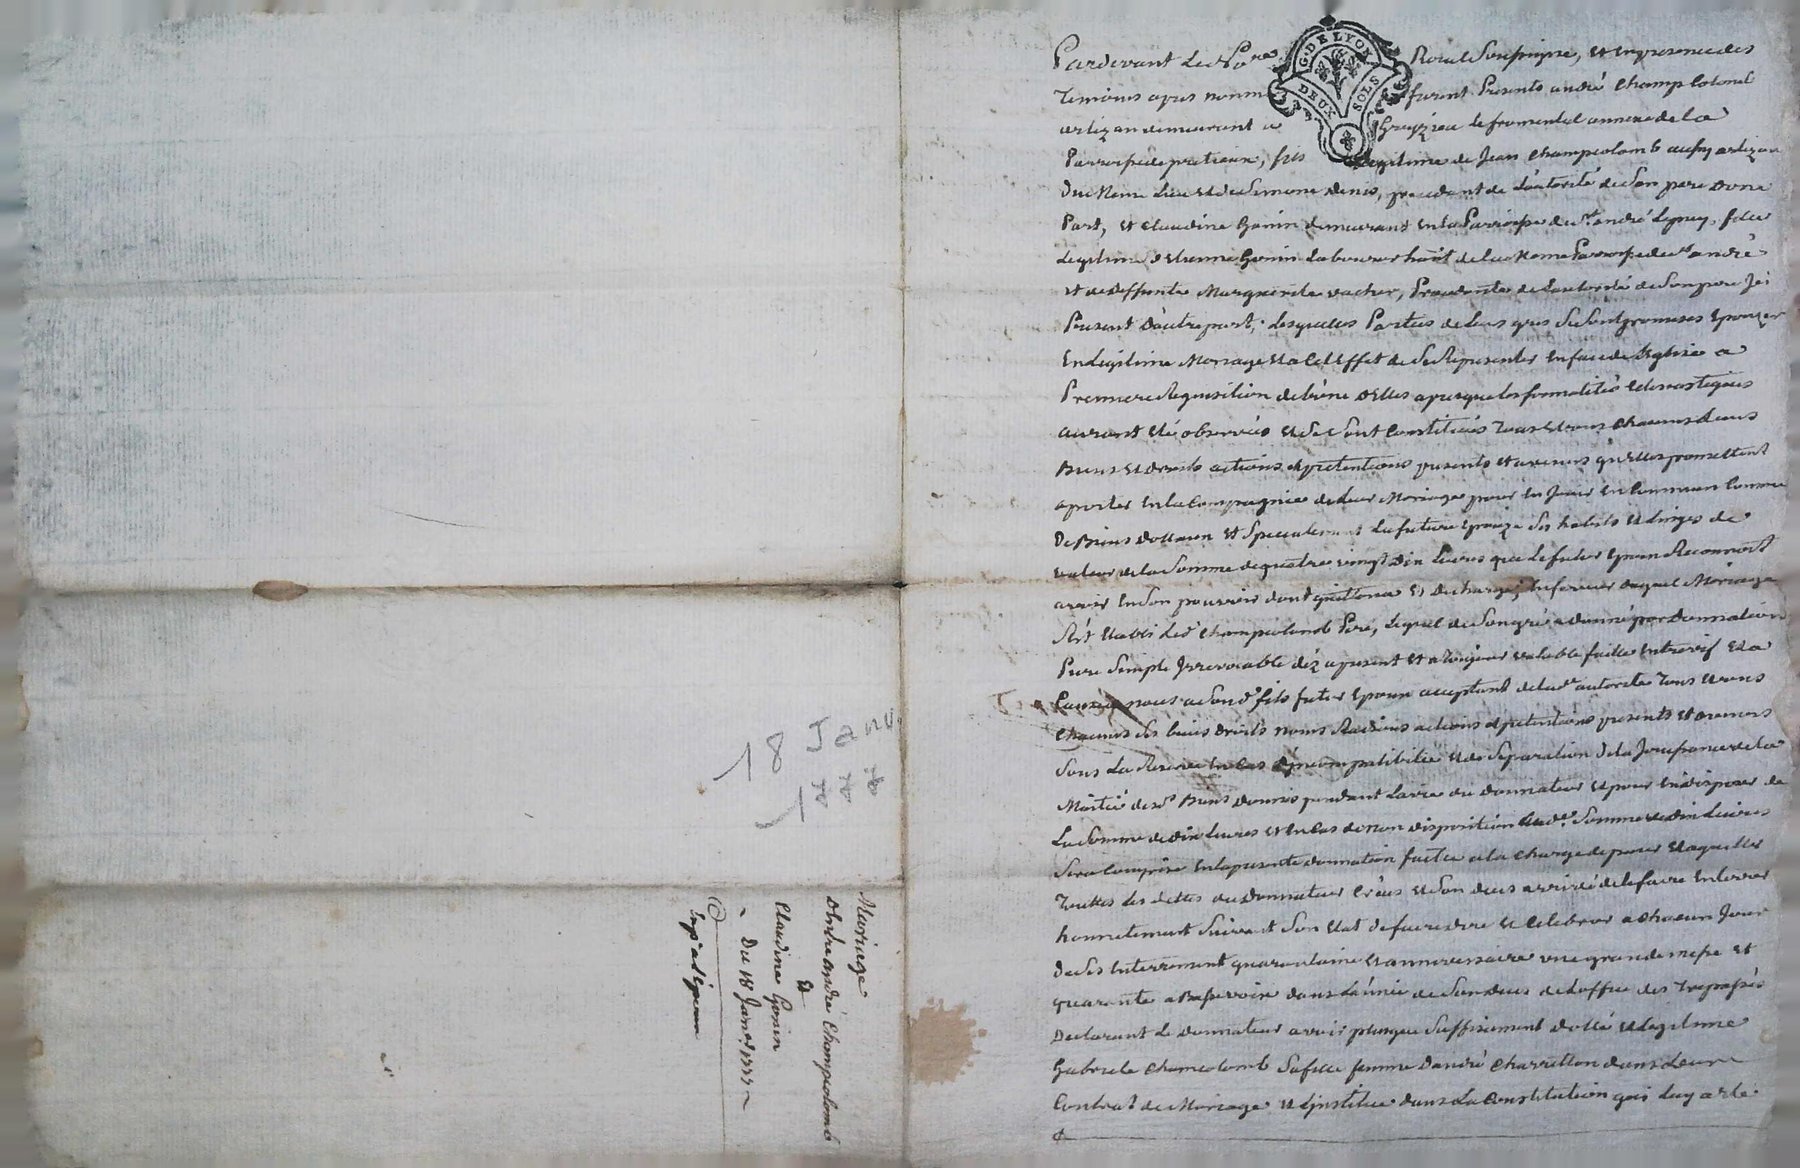 G. DE LYON
DEUX SOLS
Pardevant Led No.re Royal Soussigné, et en presence des
Temoins apres nommé furent Presents andré Champcolomb
artizan demeurant a Grezieu le fromental annexe de la
Parroisse de pretieux, fils Legitime de Jean Champcolomb aussy artizan
Du Meme Lieu et de Simone denis, procedant de L'autorité de Son pere D'une
Part, et Claudine Gonin demeurant en la Parroisse de st andré Lepuy, fille
Legitime d'Etienne Gonin Laboureur hant de la Meme Parroisse de st andré
et de deffunte Marguerite vacher, Procedante de L'autorité de Son pere Jci
Present D'autre part, Lesquelles Parties de Leurs gres Se Sont promises Epouzer
En Legitime Mariage et a Cet Effet de Se Representer en face de L'eglise a
Premiere Requisition de L'une D'elles apres que les formalités
auront eté observées et Se Sont Constitués Tous et uns Chacuns Leurs
Biens et droits actions et pretentions presents et avenirs qu'elles promettent
aporter En la Compagnie de Leur Mariage pour En Jouir En Commun Comme
De Biens dottaux et Specialement La future Epouze Ses habits et Linges de
valeur de la Somme de quatre vingt Dix Livres que Le futur Epoux Reconnoit
avoir En Son pouvoir dont quittance et decharge; En faveur duquel Mariage
S'est etabli Led.t Champcolomb Pere, Lequel de Son gré a donné par Donnation
Pure Simple Jrrevocable déz apresent et a Toujours valable faitte Entrevif et a
Cause de nous a Son d.t fils futur Epoux acceptant de lad.e autorité Tous et uns
Chacuns Ses biens Droits noms Raisons actions et pretentions presents et avenirs
Sous La Reserve En Cas d'jncompatibilité et de Separation de la Jouissance de la
Moitié desd.s Biens donnés pendant La vie du donnateur et pour En disposer de
La Somme de dix Livres et En Cas de non disposition Lad.e Somme de dix Livres
Sera Comprise En la presente donnation faitte a la Charge de payer et aquitter
Touttes les dettes du Donnateur et Son deces arrivé de le faire Enterrer
honnetement Suivant Son Etat de faire dire et Celebrer a Chacun Jour
de Ses Enterrement quarantaine et anniversaire une grande messe et
quarante a Basse voix dans L'année de Son deces de L'office des Trepassés
Declarant Le donnateur avoir plusque Suffisament dotté et Legitimé
Gabriele Champcolomb Sa fille femme D'andré Charretton dans Leur
Contrat de Mariage et L'jnstitue dans La Constitution qui Luy a eté
18 Janv
1777
Mariage
D'entre andré Champcolomb
Et
Claudine Gonin
Du 18 Janv.er 1777